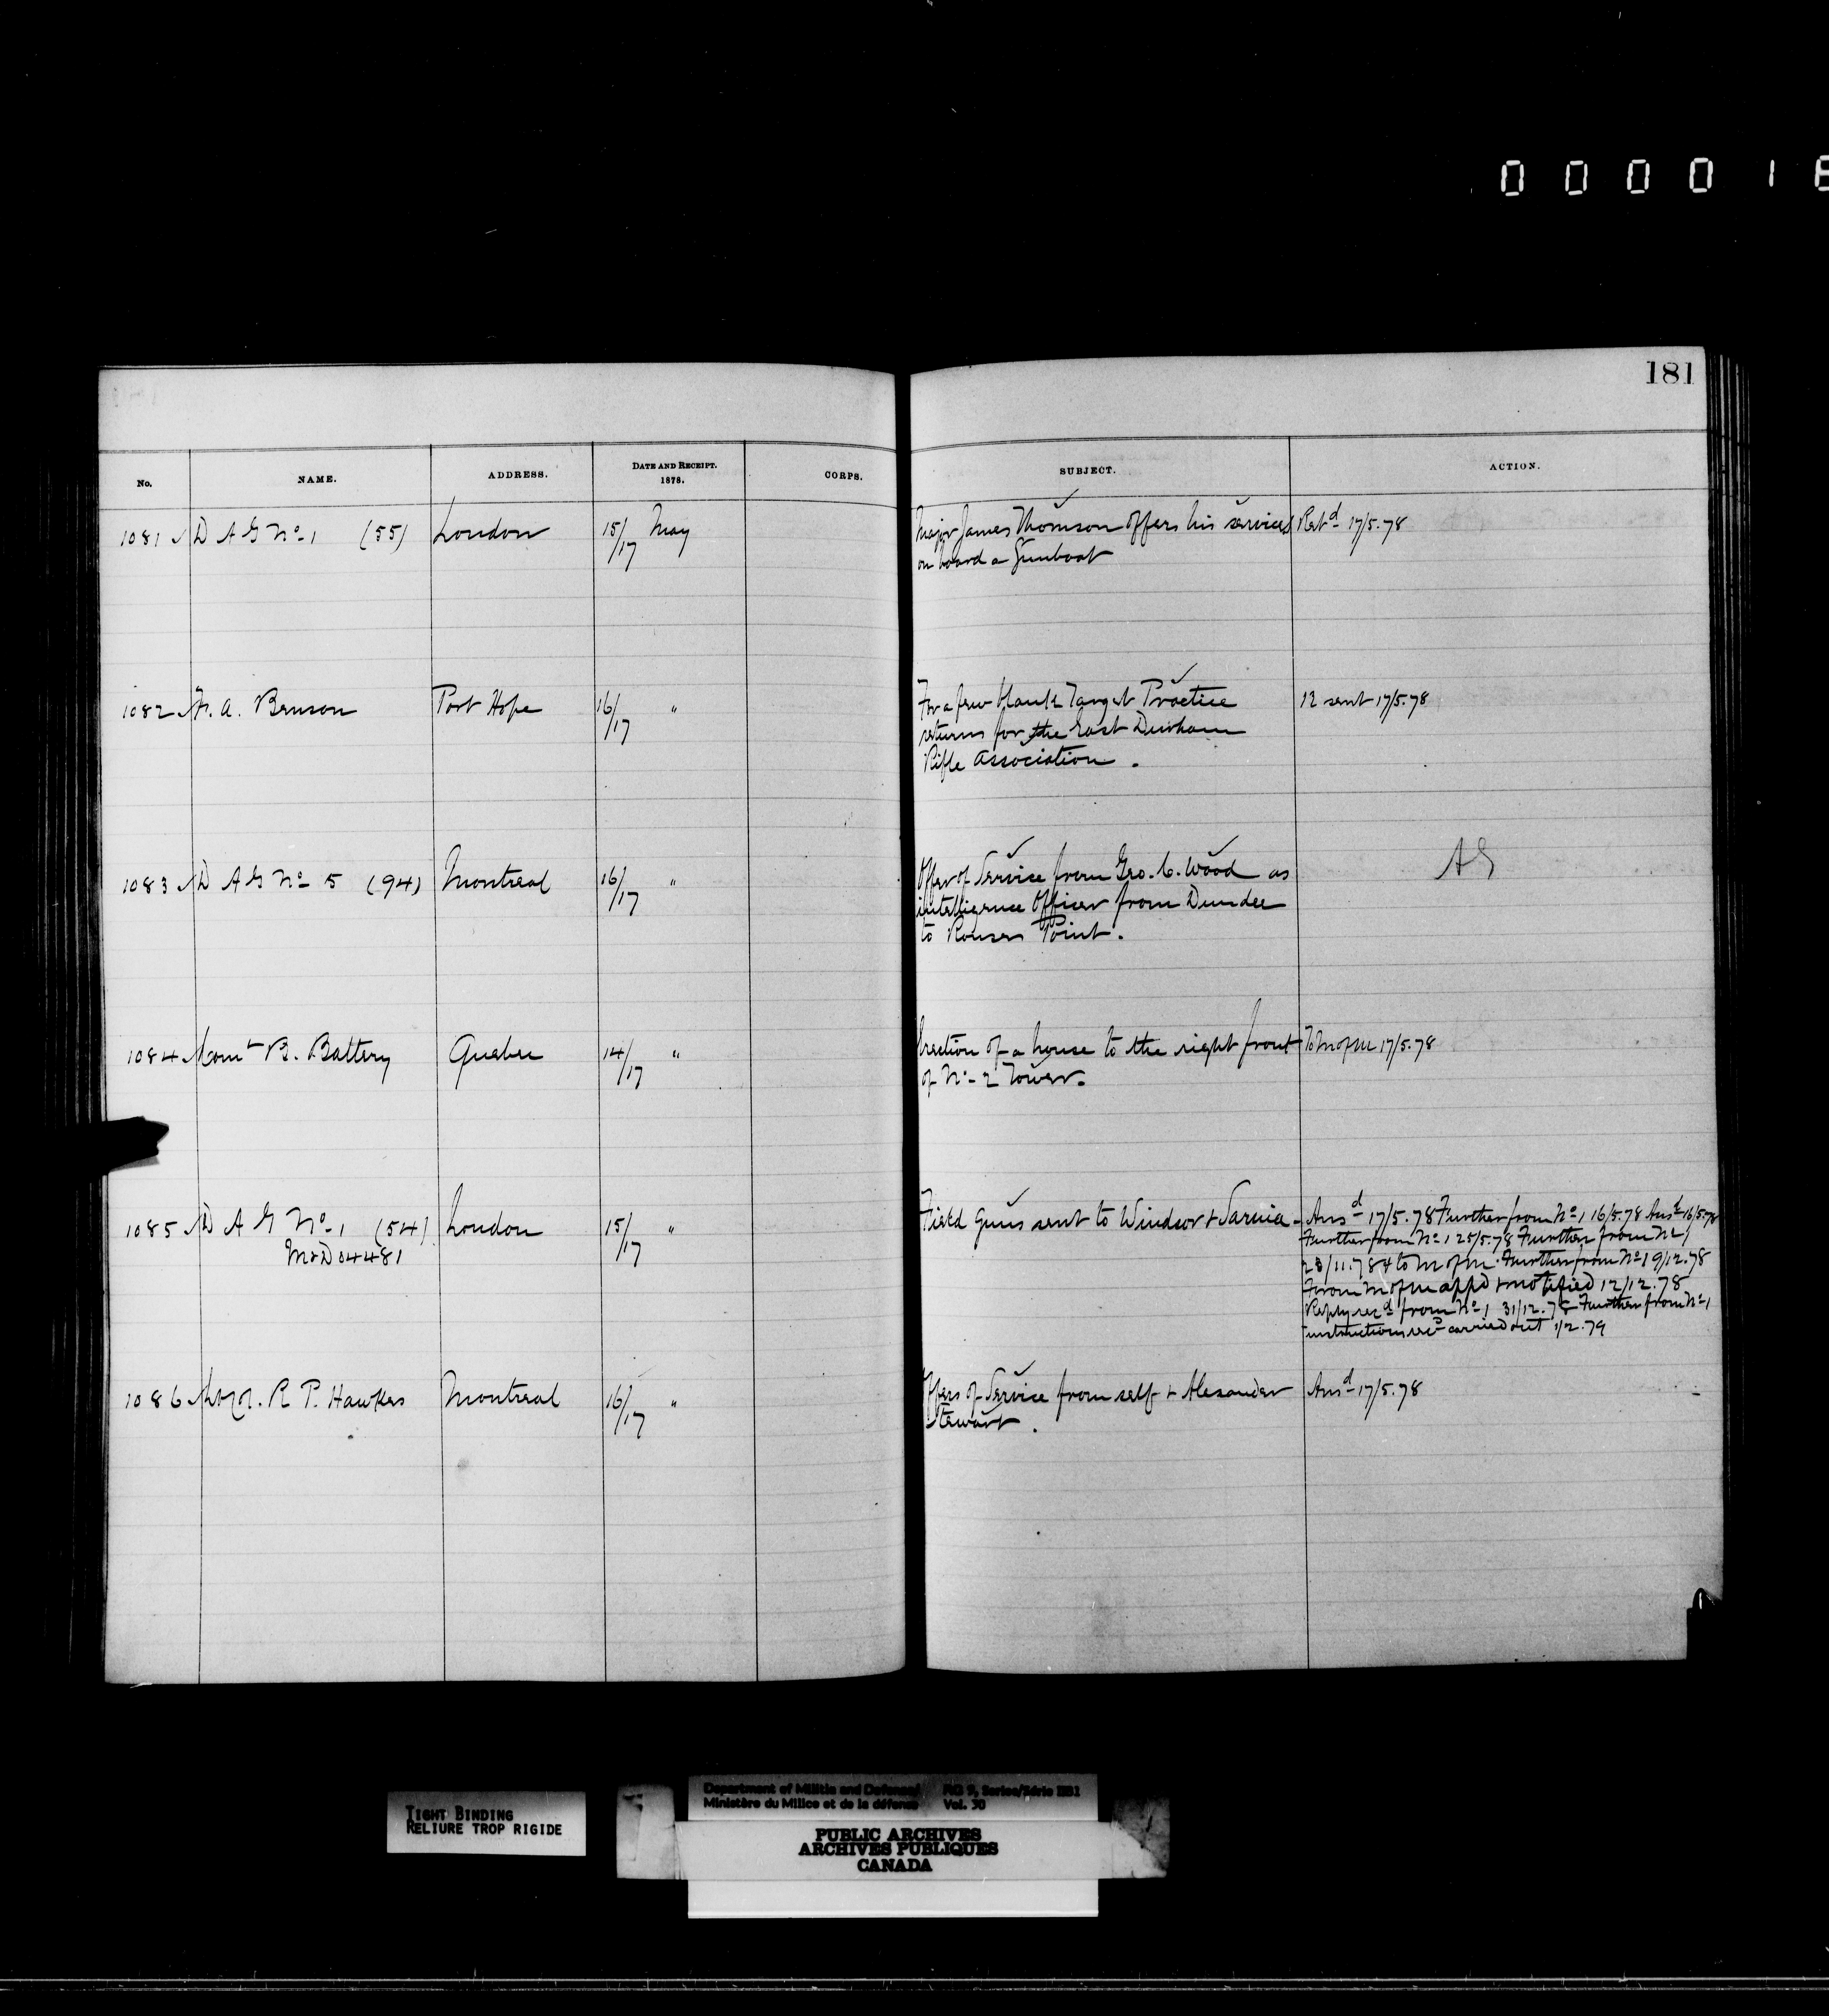 000018
181
No. NAME. ADDRESS. DATE AND RECEIPT. 1878. CORPS. SUBJECT. ACTION.
1081 D A G No 1 (55) London 15/17 May Major James Thomson offers his services Retd 17/5.78
on board a Gunboat
1082 F. A. Benson Port Hope 16/17 " For a few blank Target Practice 12 sent 17/5.78
returns for the East Durham
Rifle Association.
1083 D A G No 5 (94) Montreal 16/17 " Offer of Service from Geo. C. Wood as AG
intelligence Officer from Dundee
to Rouses Point.
1084 Comt B. Battery Quebec 14/17 " Erection of a house to the right front To M of M 17/5.78
of No 2 Tower.
1085 D A G No 1 (54) London 15/17 " Field Guns sent to Windsor & Sarnia - Ansd 17/5.78 Further from No 1 16/5.78 Ansd 16/5.78
M&D 04481 Further from No 1 25/5.78 Further from No 1
28/11.78 & to M of M. Further from No 1 9/12.78
From M of M appd & notified 12/12.78
Reply recd from No 1 31/12.78 Further from No 1
instructions carried out 1/2.79
1086 R. P. Hawkes Montreal 16/17 " Offers of Service from self & Alexander Ansd 17/5.78
Stewart.
TIGHT BINDING
RELIURE TROP RIGIDE
Department of Militia and Defence/ RG 9, Series/Série IIB1
Ministère du Milice et de la défense Vol. 30
PUBLIC ARCHIVES
ARCHIVES PUBLIQUES
CANADA